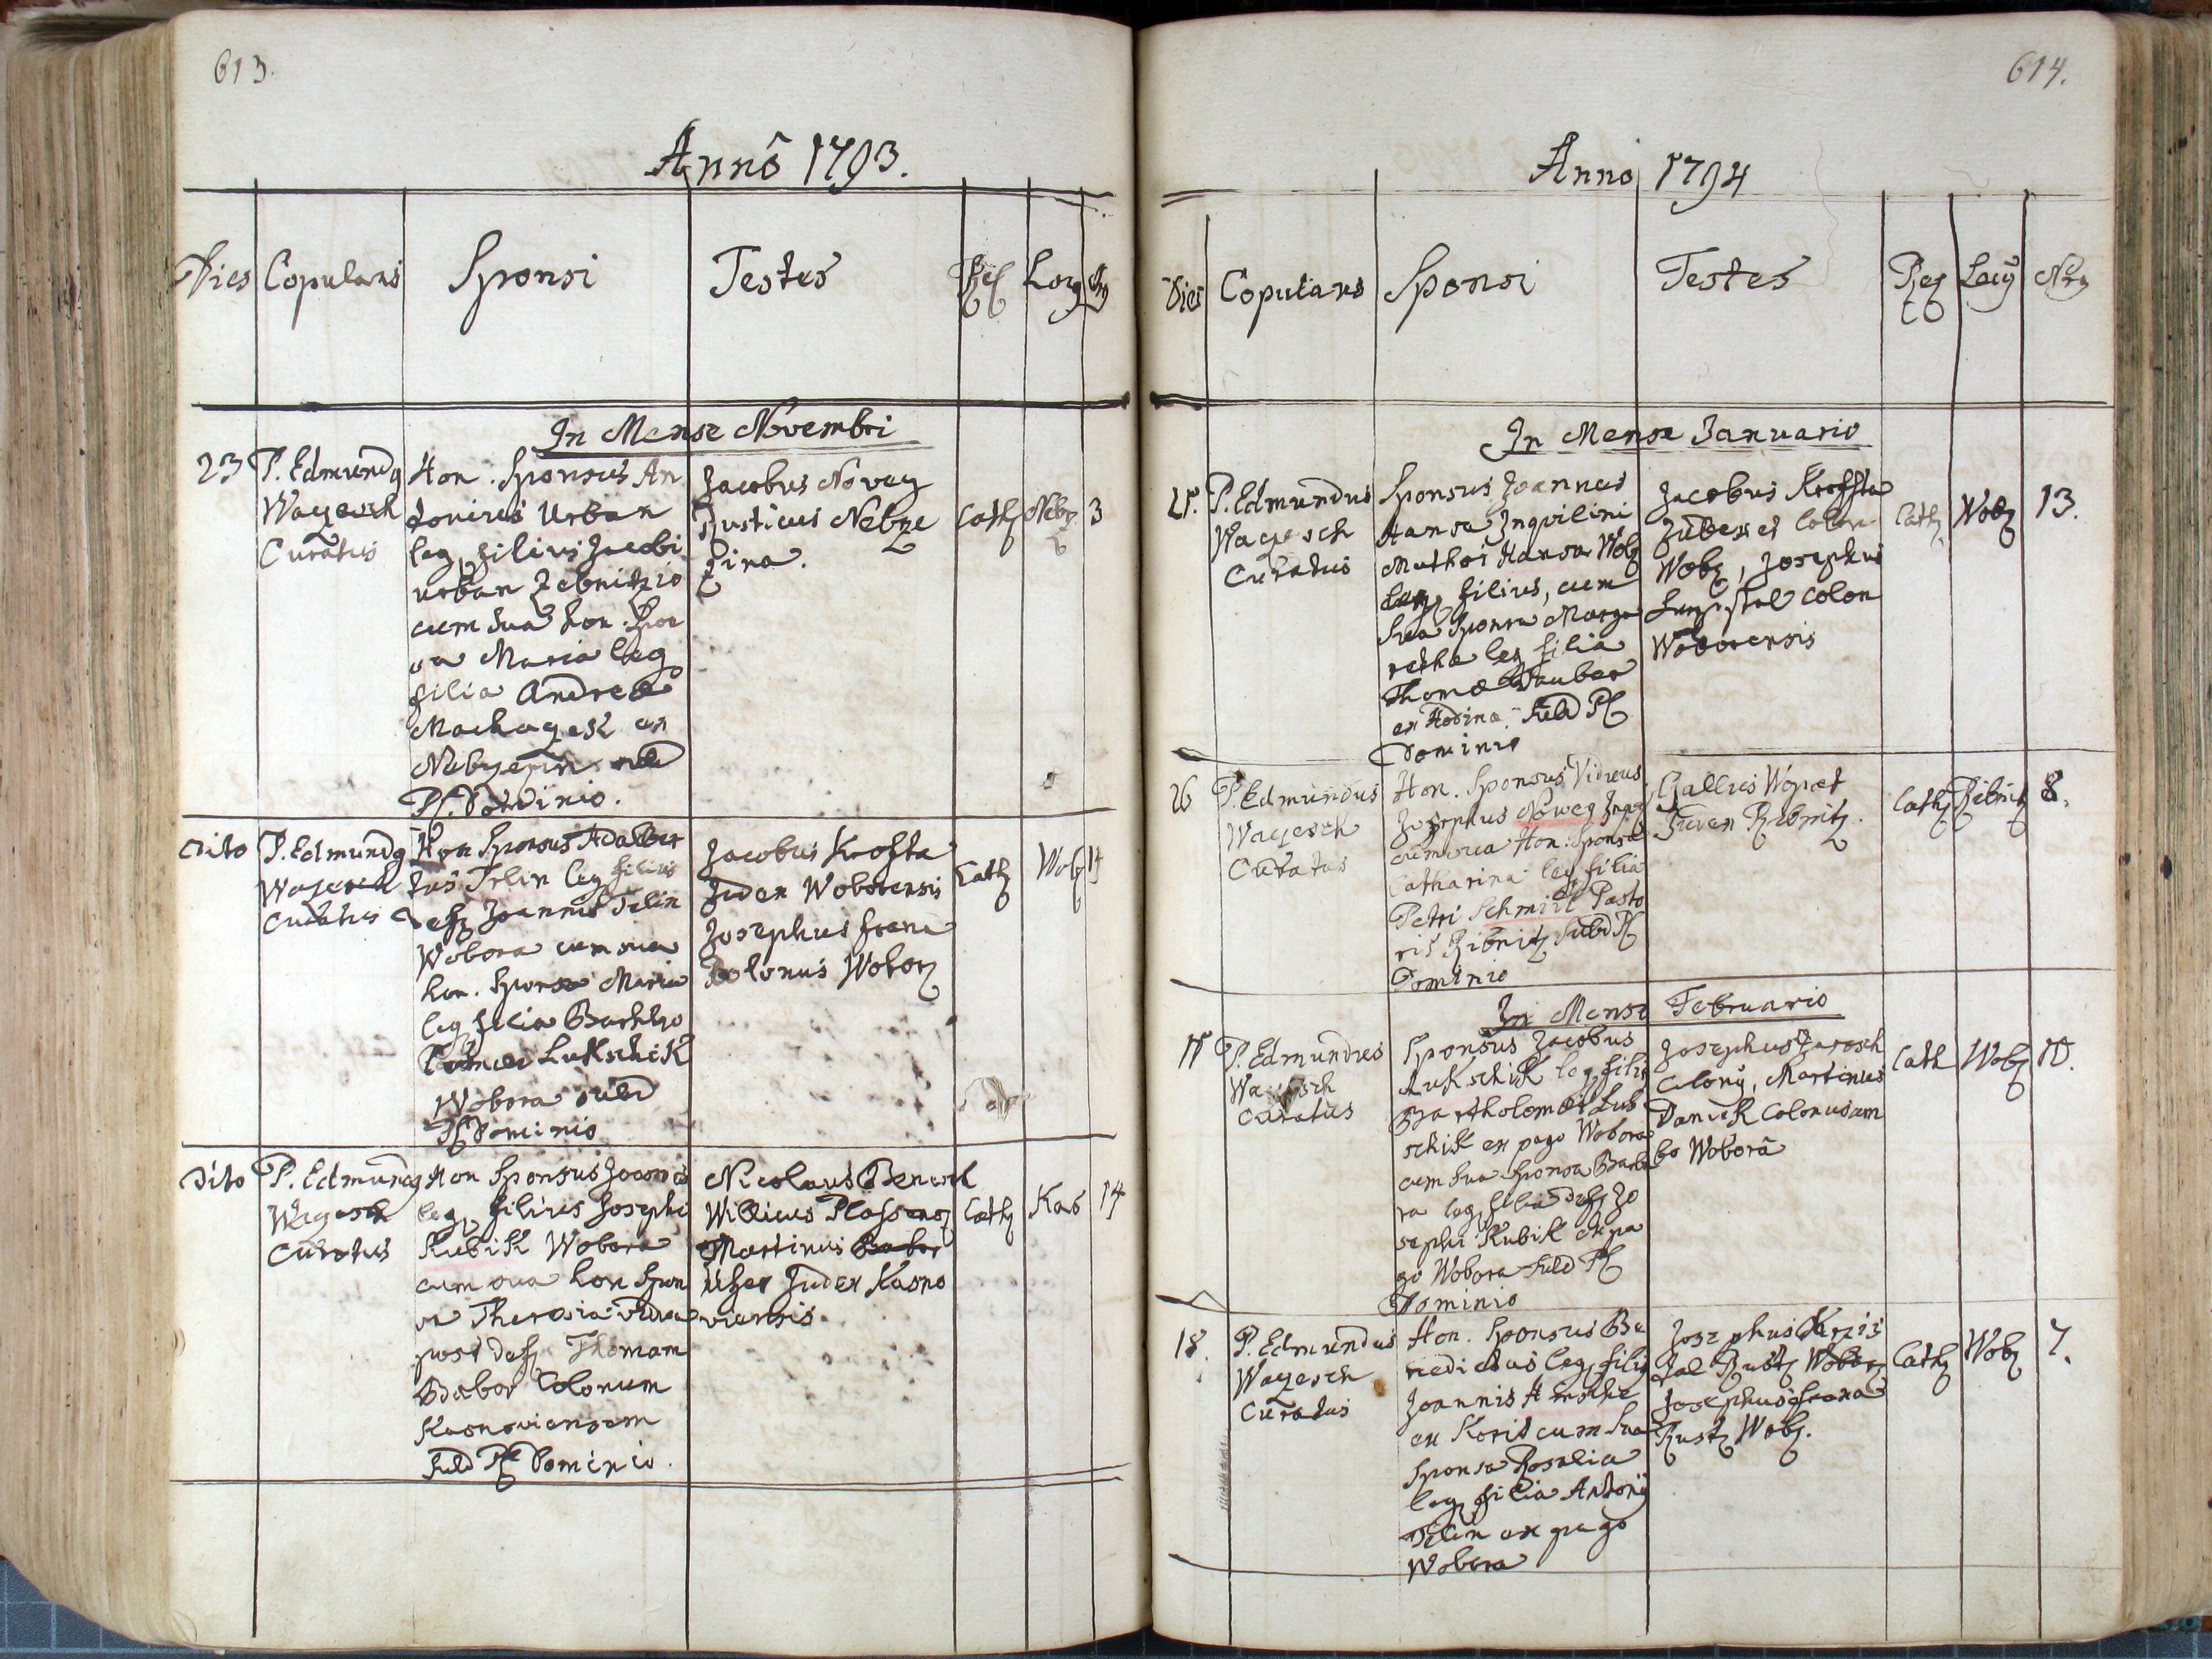 613.
Annô 1793.
Dies Copulans Sponsi Testes Rel Locy
In Mense Novembri
23 P. Edmundg
Wayesch
Curatus
Hon. Sponsus An
tonius Urban
leg filius Jacobi
urban Zebnitzio
cum sua hon. Spon
sa Maria leg
filia Andreæ
Machayek ex
Nebrzezin
Pl Dominio.
Jacobus Novey
Rusticus Nebrze
zina.
Cath Nebz 3
dito P. Edmundg
Wayesch
Curatus
Hon Sponsus Adalber
tus Telin leg filius
def Joannis Telin
Wobora cum sua
hon. Sponsa Maria
leg filia Barholo
Lukschik
Wobora sub
Pl Dominio
Jacobus Krofta
Judex Woborensis
Josephus frena
Colonus Wobor
Cath Wob 14
dito P. Edmundg
Wayesch
Curatus
Hon Sponsus Joannes
leg filius Josephi
Kubik Wobora
cum sua hon Spon
sa Theresia vidua
post def Thomam
Babor Colonum
Kasnoviensem
sub Pl Dominio.
Nicolaus Benesch
Willicus Plassens
Martinus
Judex Kasno
viensis.
Cath Kas 14
614.
Anno 1794
Dies Copulans Sponsi Testes Reg Locy Nrg
In Mense Januario
21. P. Edmundus
Wayesch
Curatus
Sponsus Joannes
Hansa Inquilini
Mathæi Hansa Wob
leg filius, cum
sua Sponsa Marga
retha leg filia
Thomæ Tauber
ex Hodina sub Pl
Dominio
Jacobus Kroffta
Judex et Colon
Wob, Josephus
colon
Woborensis
Cath Wob 13.
26 P. Edmundus
Wayesch
Curatus
Hon. Sponsus Viduus
Josephus Nowey Inq
cum sua Hon. Sponsa
Catharina leg filia
Petri Schmidt Pasto
ris Zibnitz sub Pl
Dominio
Gallus Wopat
Judex Zebnitz.
Cath Zebnitz 8.
In Mense Februario
17 P. Edmundus
Wayesch
Curatus
Sponsus Jacobus
Lukschik leg filig
Bartholomæi Luk
schik ex pago Wobora
cum sua Sponsa Barba
ra leg filia def Jo
sephi Kubik ex pa
go Wobora sub Pl
Dominio
Josephus Jarosch
Colony, Martinus
Danick Colonus am
bo Woborâ
Cath Wob 10.
18. P. Edmundus
Wayesch
Curatus
Hon. Sponsus Be
nedictus leg filig
Joannis Amsche
ex Korit cum sua
Sponsa Rosalia
leg filia Antonij
Telin ex pago
Wobora
Josephus
Rust Wobor
Josephus frena
Rust Wob.
Cath Wob 7.